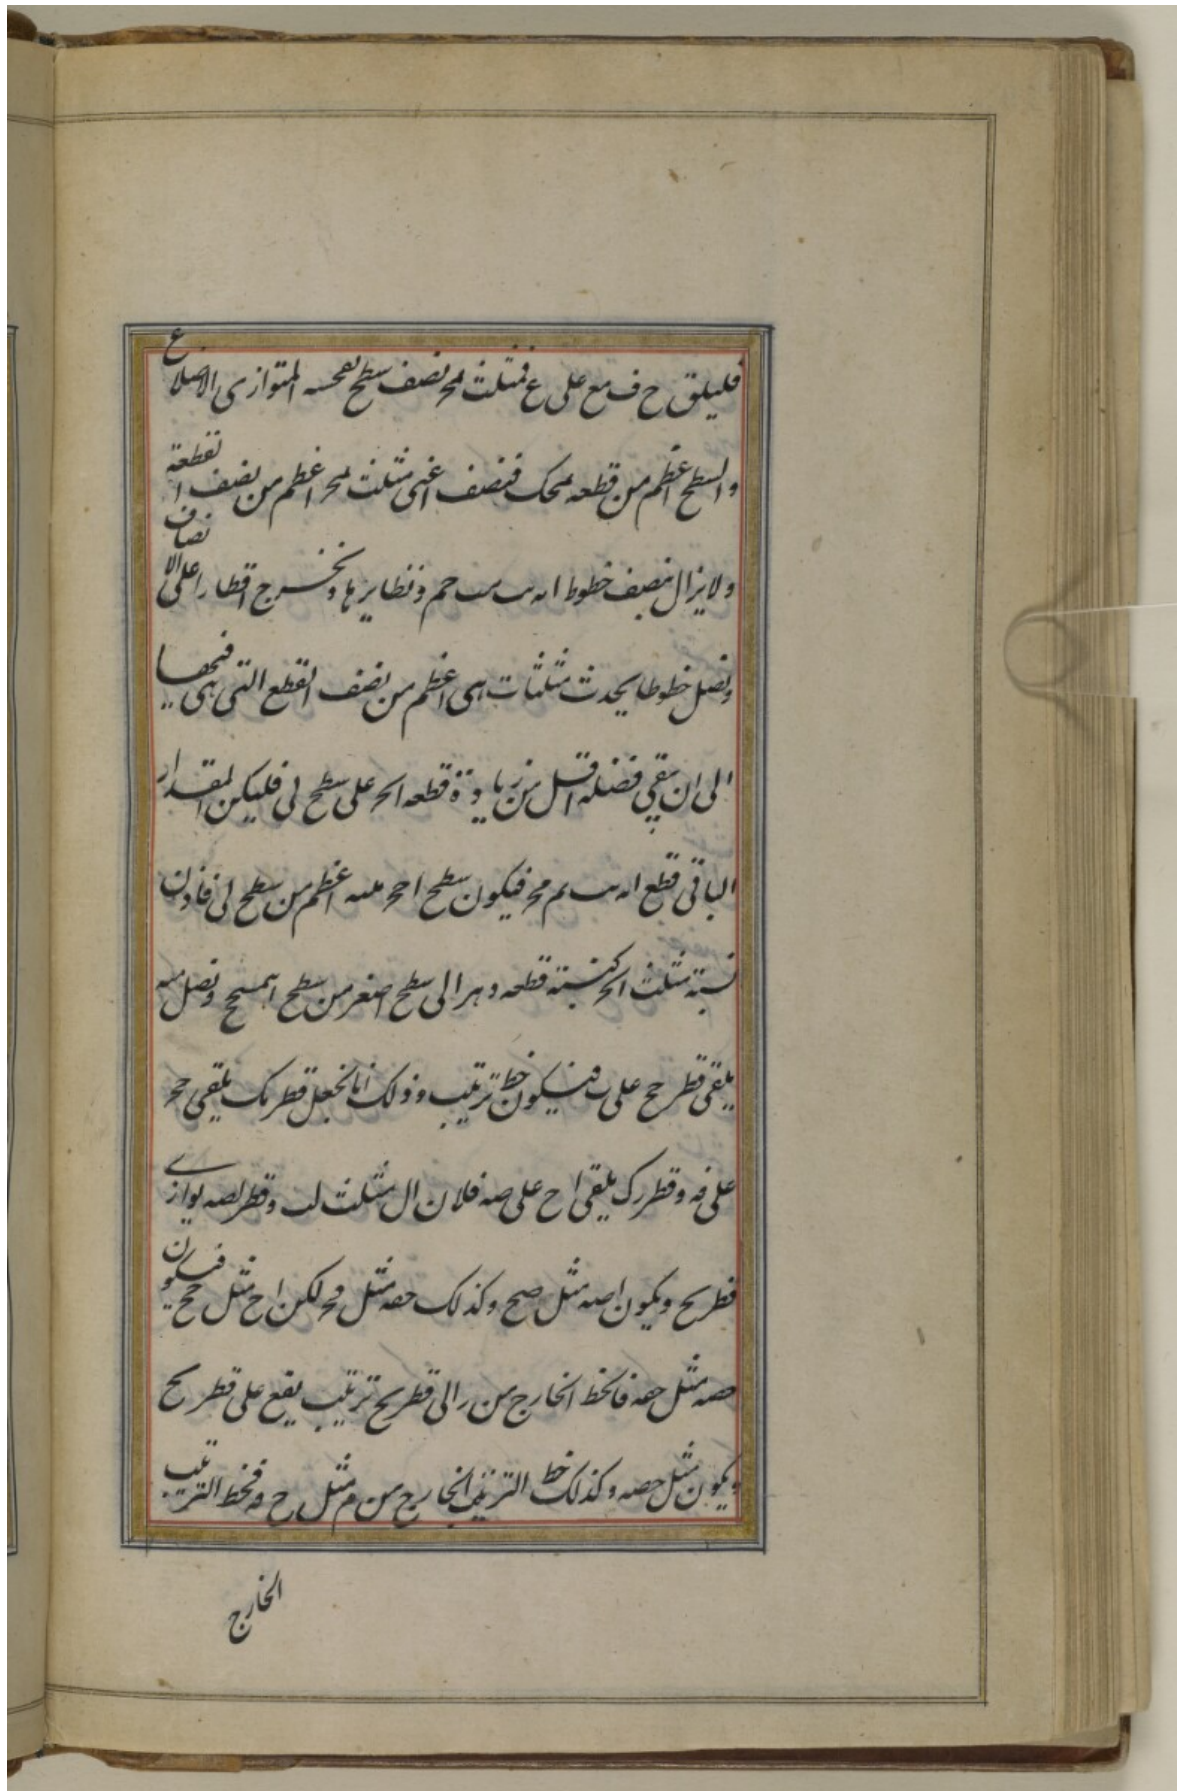 فليلق ح ف مع على ع فمثلث لمحر نصف سطح لفحسه المتوازى الاضلاع
والسطح اعظم من قطعه لمحك فنصف اعنى مثلث لمحر اعظم من نصف القطعة
ولا يزال ننصف خطوط اه ب حم ونظايرها ونخرج اقطارا على الانصاف
ونصل خطوطا يحدث مثلثات هى اعظم من نصف القطع التى هى فيها
الى ان تبقى فضلة اقل من زيادة قطعه احر على سطح لى فليكن المقدار
الباقى قطع اه ب لم محر فيكون سطح اعظم من سطح لى فاذن
نسبة مثلث احر كنسبة قطعه وهر الى سطح اصغر من سطح ونصل
يلقى قطر حح على ب فيكون خط ترتيب وذلك انا نجعل قطر مك يلقى حح
على فه وقطر رك يلقى اح على صه فلان ال مثل لب وقطر لصه يوازى
قطر بح ويكون اصه مثل صح وكذلك حفه مثل فحر لكن اح مثل حح فيكون
حصه مثل حفه فالخط الخارج من ر الى قطر بح ترتيب يقع على قطر بح
ويكون مثل حصه وكذلك خط الترتيب الخارج من م مثل ح فه فخط الترتيب
الخارج